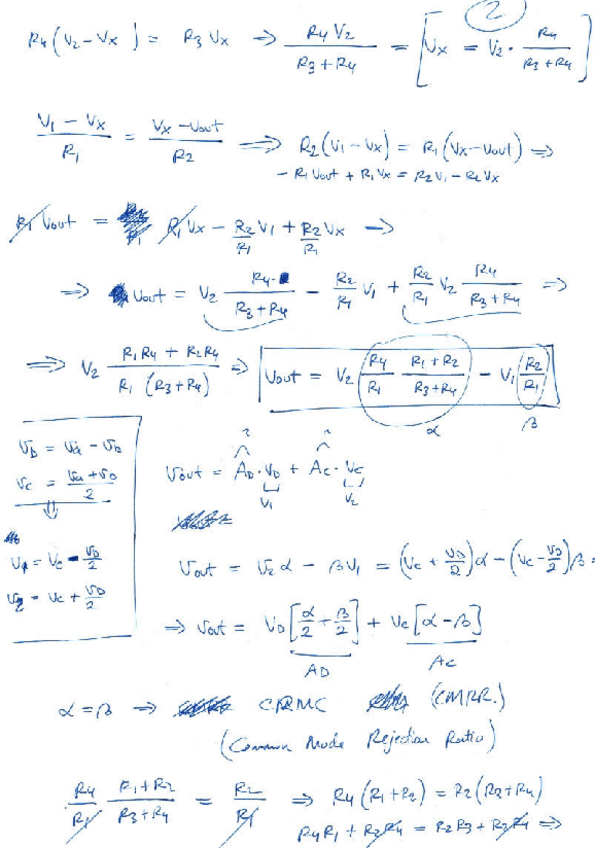 2
R4(V2 − Vx) = R3 Vx ⇒ R4 V2 / (R3 + R4) = [Vx = V2 · R4 / (R3 + R4)]
(V1 − Vx) / R1 = (Vx − Vout) / R2 ⇒ R2(V1 − Vx) = R1(Vx − Vout) ⇒
− R1 Vout + R1 Vx = R2 V1 − R2 Vx
R1 Vout = R1 Vx − R2/R1 V1 + R2/R1 Vx →
⇒ Vout = V2 R4 / (R3 + R4) − R2/R1 V1 + R2/R1 V2 R4 / (R3 + R4) ⇒
⇒ V2 (R1R4 + R2R4) / (R1 (R3 + R4)) ⇒ Vout = V2 R4/R1 (R1 + R2) / (R3 + R4) − V1 R2/R1
α β
VD = Va − Vb
Vc = (Va + Vb) / 2
⇓
V1 = Vc − VD/2
V2 = Vc + VD/2
? ?
Vout = AD · VD + Ac · Vc
V1 V2
Vout = V2 α − β V1 = (Vc + VD/2) α − (Vc − VD/2) β =
⇒ Vout = VD [α/2 + β/2] + Vc [α − β]
AD Ac
α = β ⇒ CRMC (CMRR.)
(Common Mode Rejection Ratio)
R4/R1 (R1 + R2) / (R3 + R4) = R2/R1 ⇒ R4(R1 + R2) = R2(R3 + R4)
R4R1 + R2R4 = R2R3 + R2R4 ⇒